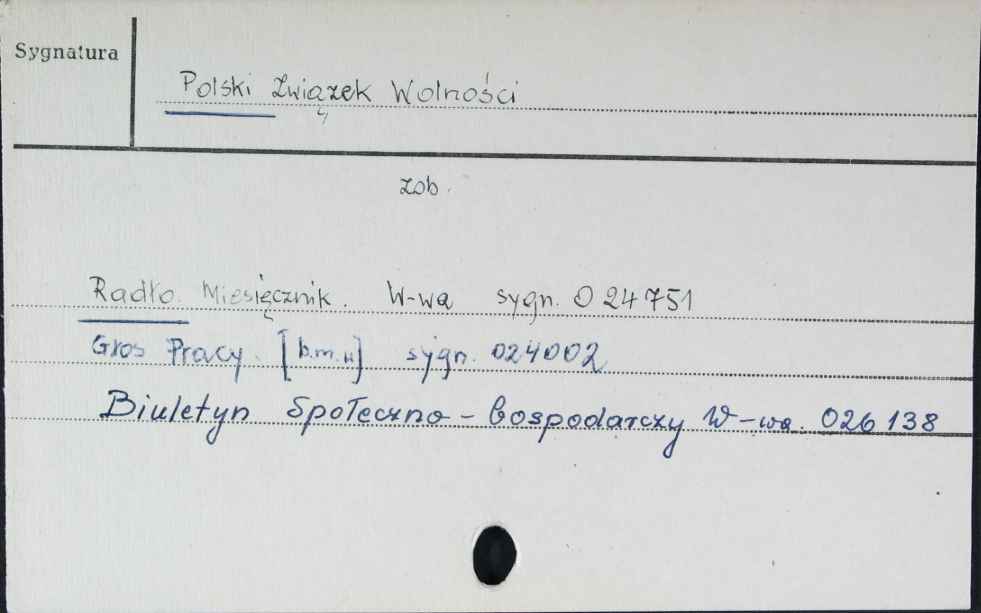 Sygnatura
Polski Związek Wolności
zob.
Radło. Miesięcznik. W-wa sygn. 024751
Głos Pracy. [b.m.w] sygn. 024002
Biuletyn Społeczno - Gospodarczy W-wa. 026138